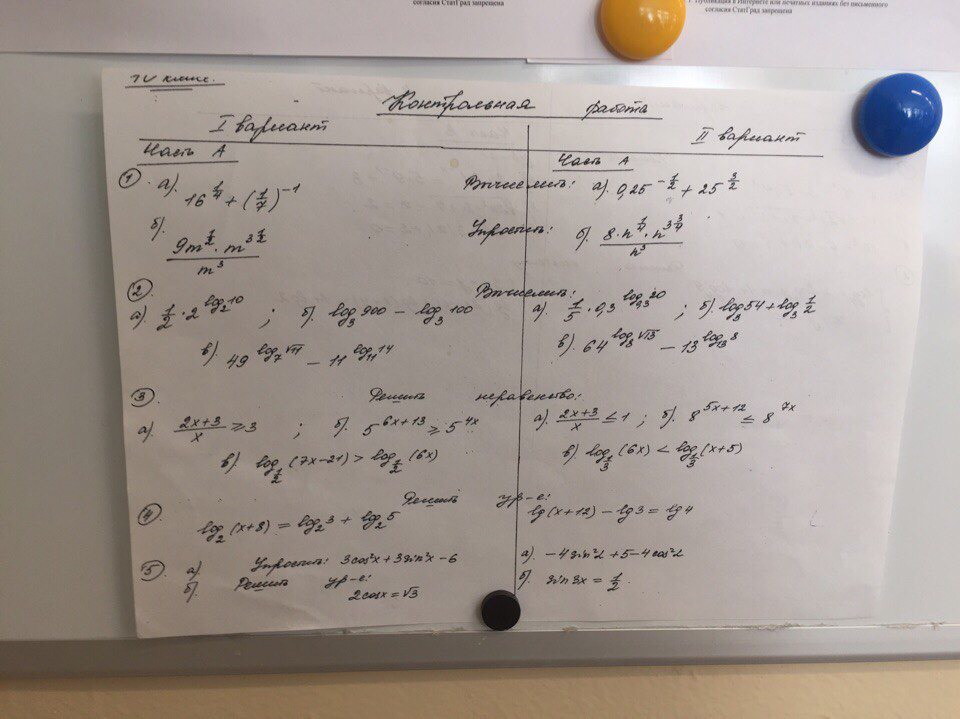 согласия СтатГрад запрещена
Публикация в Интернете или печатных изданиях без письменного
согласия СтатГрад запрещена
IV класс.
Контрольная работа
I вариант
II вариант
Часть А
Часть А
① а). 16^{1/4} + (1/7)^{-1}
Вычислить: а). 0,25^{-1/2} + 25^{3/2}
б). (9m^{1/2} · m^{3 1/2}) / m^3
Упростить: б). (8 · n^{1/4} · n^{3 3/4}) / n^3
②
Вычислить:
а). 1/2 · 2^{log_2 10} ; б). log_3 900 − log_3 100
а). 1/5 · 0,3^{log_{0,3} 20} ; б). log_3 54 + log_3 1/2
в). 49^{log_7 √11} − 11^{log_11 14}
в). 64^{log_8 √13} − 13^{log_13 8}
③ Решить неравенство:
а). (2x+3)/x ≥ 3 ; б). 5^{6x+13} ≥ 5^{4x}
а). (2x+3)/x ≤ 1 ; б). 8^{5x+12} ≤ 8^{7x}
в). log_{1/2} (7x−21) > log_{1/2} (6x)
в). log_{1/3} (6x) < log_{1/3} (x+5)
④ Решить ур-е:
log_2 (x+8) = log_2 3 + log_2 5
lg(x+12) − lg3 = lg4
⑤ а) Упростить: 3cos²x + 3sin²x − 6
а) −4sin²α + 5 − 4cos²α
б). Решить ур-е:
2cosx = √3
б).